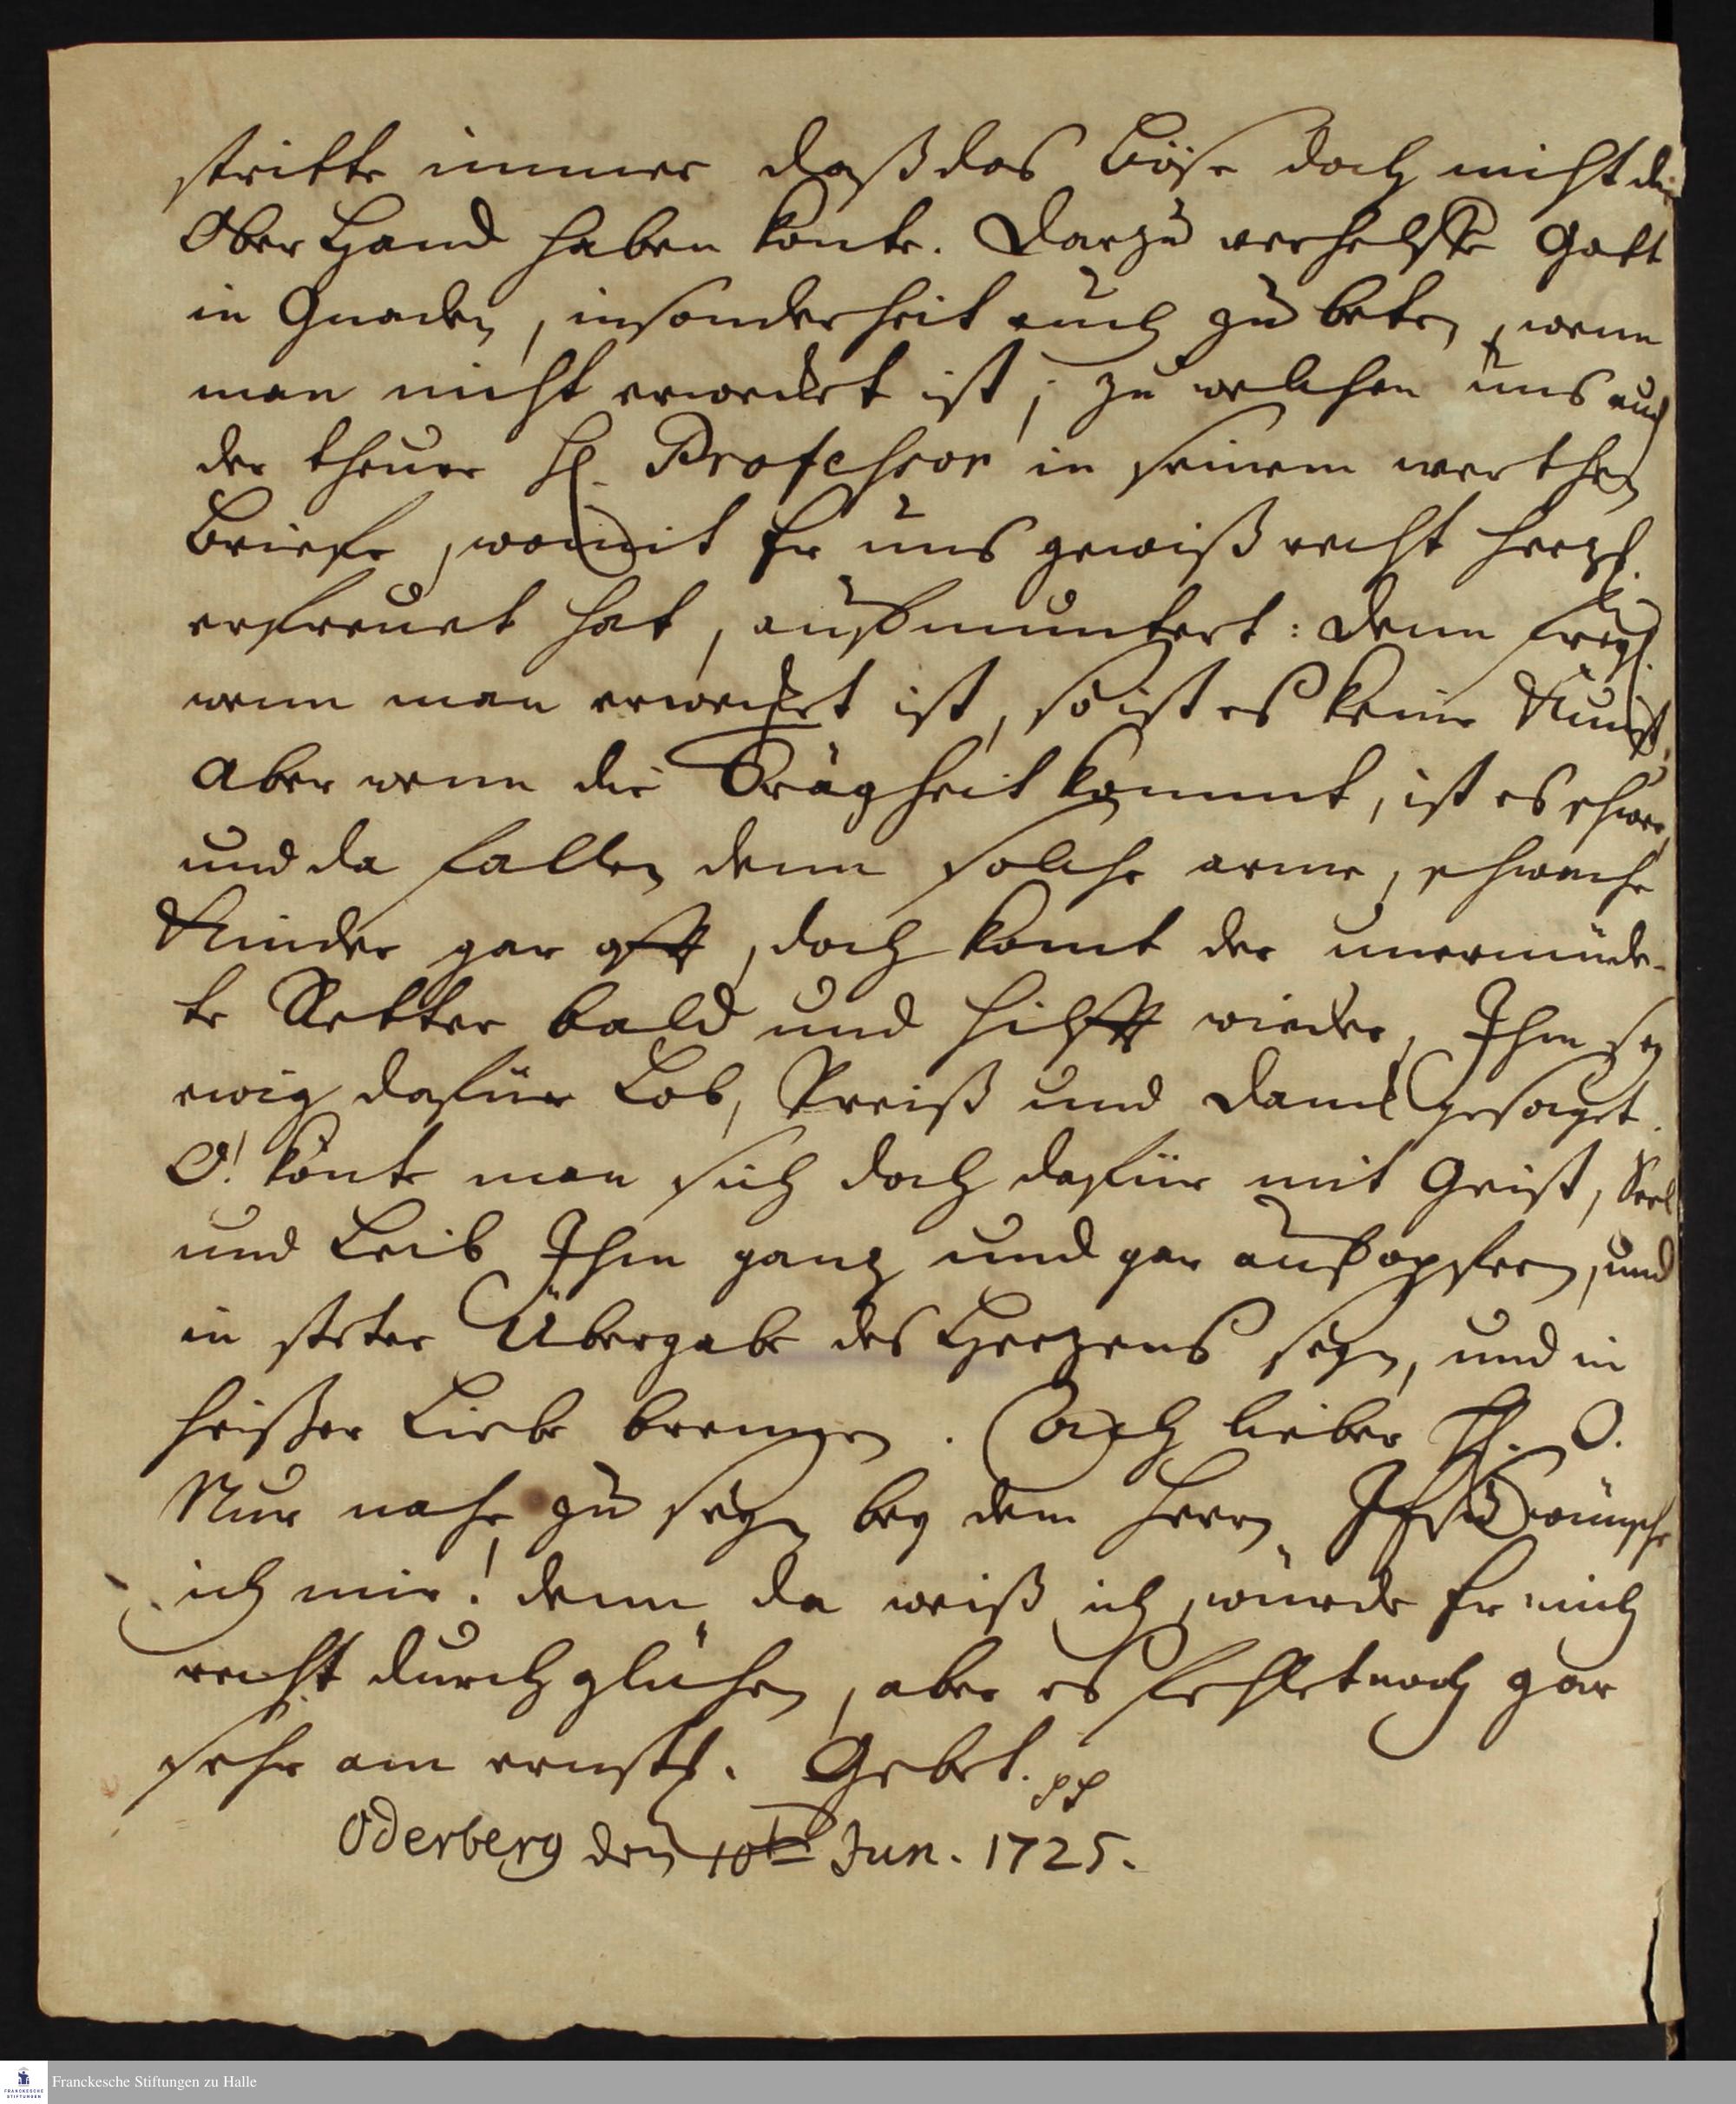 stritte immer daß das Böse doch nicht die
Ober Hand haben konte. Darzu verhelffe Gott
in Gnaden, insonderheit auch zu beten, wenn
man nicht erwecket ist; zu welchen uns auch
der theure H. Professor in seinem werthen
Briefe, womit Er uns gewiß recht hertzl.
erfreuet hat, auffmuntert: denn freyl.
wenn man erwecket ist, so ist es keine Kunst,
aber wenn die Trägheit kommt, ist es schwer,
und da fallen denn solche arme, schwache
Kinder gar offt, doch komt der unermüde-
te Retter bald und hilfft wieder, Ihm sey
ewig dafür Lob, Preiß und Danck gesaget.
O! könte man sich doch dafür mit Geist, Seel
und Leib Ihm gantz und gar auffopfern, und
in steter Übergabe des Hertzens seyn, und in
heißer Liebe brennen. Ach lieber H. O.
Nur nahe zu seyn bey dem Herrn Jesu wünsche
ich mir! denn da weiß ich, würde Er mich
recht durchglühen, aber es fehlet noch gar
sehr am ernstl. Gebet. pp
Oderberg den 10ten Jun. 1725.
Franckesche Stiftungen zu Halle
FRANCKESCHE
STIFTUNGEN